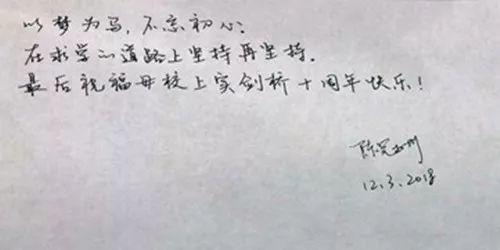 以梦为马，不忘初心。
在求学的道路上坚持再坚持。
最后祝福母校上实剑桥十周年快乐！
12.3.2018